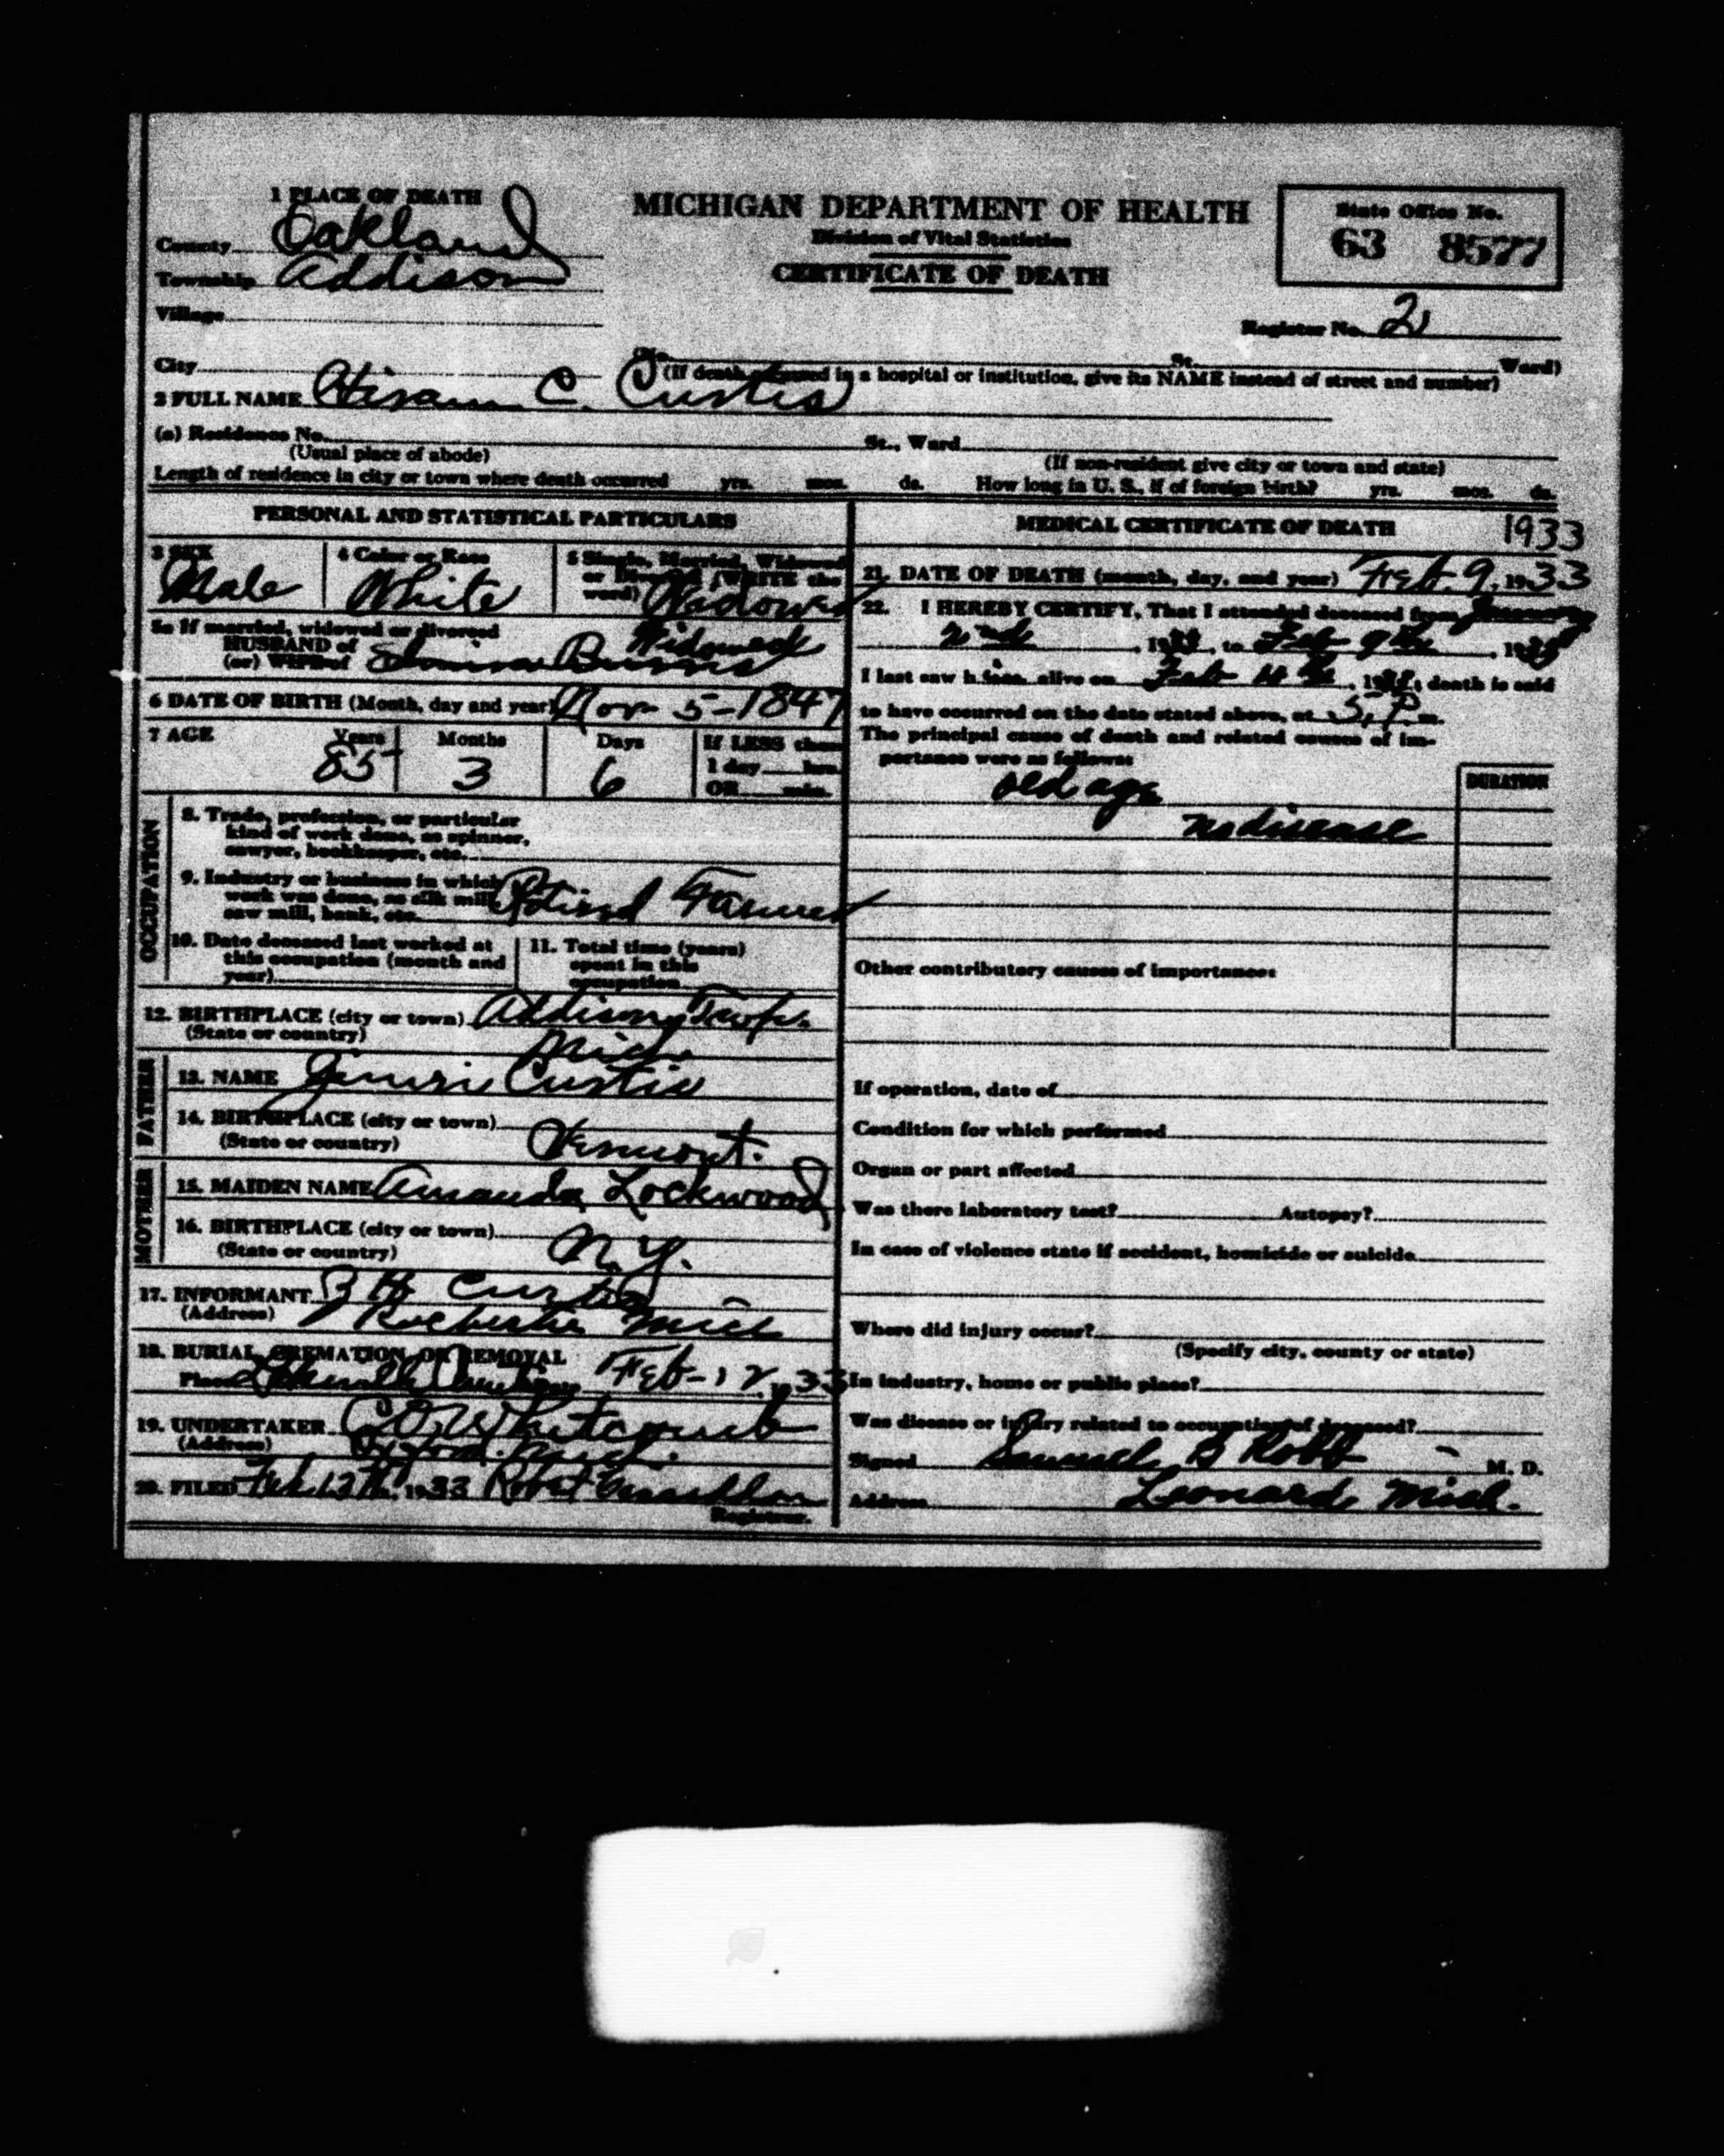 1 PLACE OF DEATH
County Oakland
Township Addison
Village
City
MICHIGAN DEPARTMENT OF HEALTH
Division of Vital Statistics
CERTIFICATE OF DEATH
State Office No.
63 8577
Register No. 2
No. St. Ward)
(If death occurred in a hospital or institution, give its NAME instead of street and number)
2 FULL NAME Hiram C. Curtis
(a) Residence No. St., Ward
(Usual place of abode) (If non-resident give city or town and state)
Length of residence in city or town where death occurred yrs. mos. ds. How long in U. S., if of foreign birth? yrs. mos. ds.
PERSONAL AND STATISTICAL PARTICULARS
3 SEX
Male
4 Color or Race
White
5 Single, Married, Widowed
or Divorced (WRITE the
word) Widowed
Widowed
5a If married, widowed or divorced
HUSBAND of
(or) WIFE of
6 DATE OF BIRTH (Month, day and year) Nov 5-1847
7 AGE
Years
85
Months
3
Days
6
If LESS than
1 day hrs.
OR min.
OCCUPATION
8. Trade, profession, or particular
kind of work done, as spinner,
sawyer, bookkeeper, etc.
9. Industry or business in which
work was done, as silk mill,
saw mill, bank, etc. Retired Farmer
10. Date deceased last worked at
this occupation (month and
year)
11. Total time (years)
spent in this
occupation
12. BIRTHPLACE (city or town) Addison Twp.
(State or country) Mich
FATHER
13. NAME Curtis
14. BIRTHPLACE (city or town)
(State or country) Vermont.
MOTHER
15. MAIDEN NAME Amanda Lockwood
16. BIRTHPLACE (city or town)
(State or country) N.Y.
17. INFORMANT H Curtis
(Address) Rochester Mich
18. BURIAL, CREMATION OR REMOVAL
Place Feb-12 1933
19. UNDERTAKER C.O. Whitcomb
(Address) Mich.
20. FILED Feb 12th, 1933 Robt
Registrar.
MEDICAL CERTIFICATE OF DEATH 1933
21. DATE OF DEATH (month, day, and year) Feb. 9, 1933
22. I HEREBY CERTIFY, That I attended deceased from January
2nd, 1933, to Feb 9th, 1933
I last saw him alive on Feb, 19, death is said
to have occurred on the date stated above, at 5, P. m.
The principal cause of death and related causes of im-
portance were as follows:
DURATION
old age
no disease
Other contributory causes of importance:
If operation, date of
Condition for which performed
Organ or part affected
Was there laboratory test? Autopsy?
In case of violence state if accident, homicide or suicide
Where did injury occur?
(Specify city, county or state)
In industry, home or public place?
Was disease or injury related to occupation of deceased?
Signed Samuel B Robb M. D.
Address Leonard, Mich.